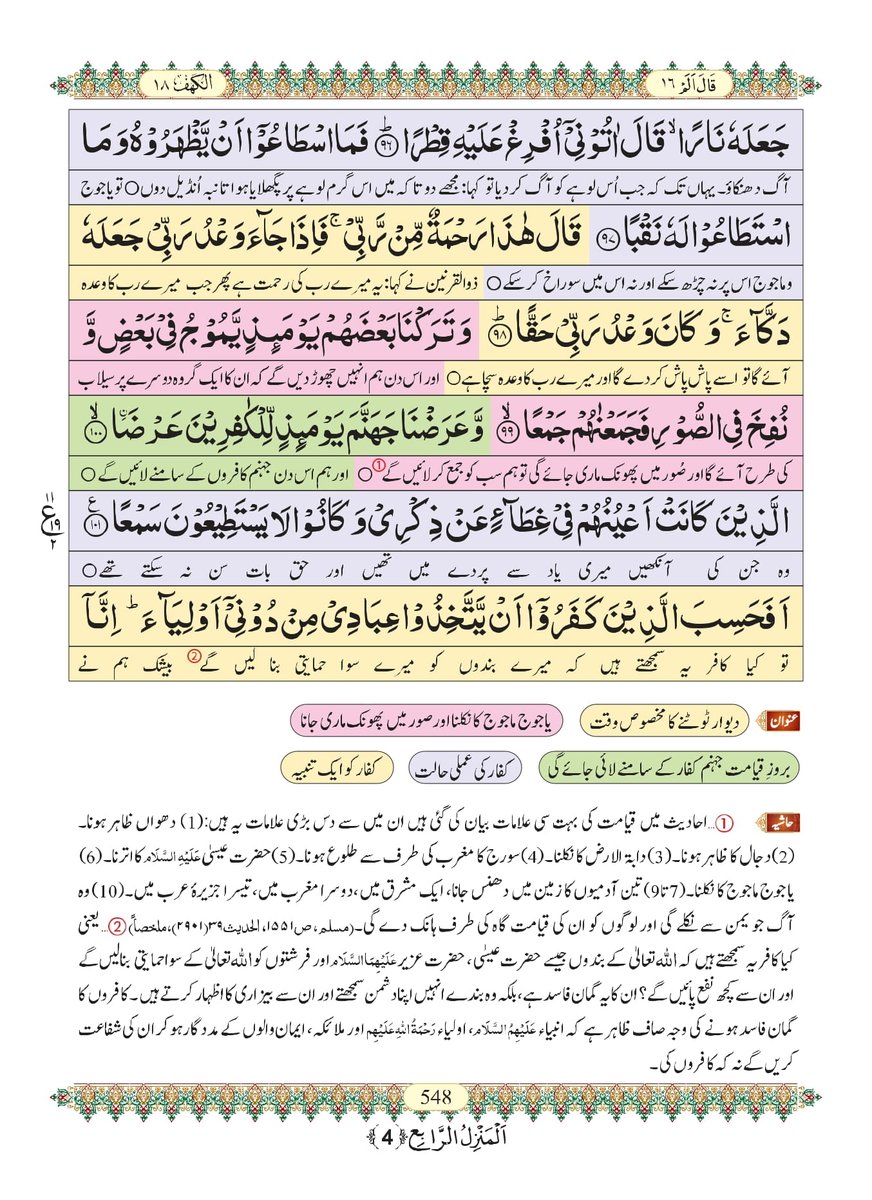 قَالَ اَلَمْ ١٦
الكهف ١٨
جَعَلَهٗ نَارًاۙ قَالَ اٰتُوْنِیْۤ اُفْرِغْ عَلَیْهِ قِطْرًاؕ(۹۶) فَمَا اسْطَاعُوْۤا اَنْ یَّظْهَرُوْهُ وَ مَا
آگ دھنکاؤ۔ یہاں تک کہ جب اُس لوہے کو آگ کردیا تو کہا: مجھے دو تا کہ میں اس گرم لوہے پر پگھلایا ہوا تانبہ اُنڈیل دوں○ تو یاجوج
اسْتَطَاعُوْا لَهٗ نَقْبًا(۹۷) قَالَ هٰذَا رَحْمَةٌ مِّنْ رَّبِّیْۚ فَاِذَا جَآءَ وَعْدُ رَبِّیْ جَعَلَهٗ
وماجوج اس پر نہ چڑھ سکے اور نہ اس میں سوراخ کرسکے○ ذوالقرنین نے کہا: یہ میرے رب کی رحمت ہے پھر جب میرے رب کا وعدہ
دَكَّآءَۚ وَ كَانَ وَعْدُ رَبِّیْ حَقًّاؕ(۹۸) وَ تَرَكْنَا بَعْضَهُمْ یَوْمَىٕذٍ یَّمُوْجُ فِیْ بَعْضٍ وَّ
آئے گا تو اسے پاش پاش کردے گا اور میرے رب کا وعدہ سچا ہے○ اور اس دن ہم انہیں چھوڑ دیں گے کہ ان کا ایک گروہ دوسرے پر سیلاب
نُفِخَ فِی الصُّوْرِ فَجَمَعْنٰهُمْ جَمْعًاۙ(۹۹) وَّ عَرَضْنَا جَهَنَّمَ یَوْمَىٕذٍ لِّلْكٰفِرِیْنَ عَرْضَاۙﰳ(۱۰۰)
کی طرح آئے گا اور صُور میں پھونک ماری جائے گی تو ہم سب کو جمع کر لائیں گے①○ اور ہم اس دن جہنم کافروں کے سامنے لائیں گے○
الَّذِیْنَ كَانَتْ اَعْیُنُهُمْ فِیْ غِطَآءٍ عَنْ ذِكْرِیْ وَ كَانُوْا لَا یَسْتَطِیْعُوْنَ سَمْعًا۠(۱۰۱)
۱۱ ع ۱۹ ۲
وہ جن کی آنکھیں میری یاد سے پردے میں تھیں اور حق بات سن نہ سکتے تھے○
اَفَحَسِبَ الَّذِیْنَ كَفَرُوْۤا اَنْ یَّتَّخِذُوْا عِبَادِیْ مِنْ دُوْنِیْۤ اَوْلِیَآءَؕ اِنَّاۤ
تو کیا کافر یہ سمجھتے ہیں کہ میرے بندوں کو میرے سوا حمایتی بنالیں گے② بیشک ہم نے
عنوان دیوار ٹوٹنے کا مخصوص وقت یاجوج ماجوج کا نکلنا اور صور میں پھونک ماری جانا
بروزِ قیامت جہنم کفار کے سامنے لائی جائے گی کفار کی عملی حالت کفار کو ایک تنبیہ
حاشیہ ①… احادیث میں قیامت کی بہت سی علامات بیان کی گئی ہیں ان میں سے دس بڑی علامات یہ ہیں: (1) دھواں ظاہر ہونا۔
(2) دجال کا ظاہر ہونا۔ (3) دابۃ الارض کا نکلنا۔ (4) سورج کا مغرب کی طرف سے طلوع ہونا۔ (5) حضرت عیسیٰ عَلَیْہِ السَّلَام کا اترنا۔ (6)
یاجوج ماجوج کا نکلنا۔ (7 تا 9) تین آدمیوں کا زمین میں دھنس جانا، ایک مشرق میں، دوسرا مغرب میں، تیسرا جزیرۂ عرب میں۔ (10) وہ
آگ جو یمن سے نکلے گی اور لوگوں کو ان کی قیامت گاہ کی طرف ہانک دے گی۔ (مسلم، ص۱۵۵۱، الحدیث ۳۹(۲۹۰۱)، ملخصاً) ②… یعنی
کیا کافر یہ سمجھتے ہیں کہ اللہ تعالیٰ کے بندوں جیسے حضرت عیسیٰ، حضرت عزیر عَلَیْہِمَا السَّلَام اور فرشتوں کو اللہ تعالیٰ کے سوا حمایتی بنالیں گے
اور ان سے کچھ نفع پائیں گے؟ ان کا یہ گمان فاسد ہے، بلکہ وہ بندے انہیں اپنا دشمن سمجھتے اور ان سے بیزاری کا اظہار کرتے ہیں۔ کافروں کا
گمان فاسد ہونے کی وجہ صاف ظاہر ہے کہ انبیاء عَلَیْہِمُ السَّلَام، اولیاء رَحْمَۃُ اللہِ عَلَیْہِم اور ملائکہ، ایمان والوں کے مددگار ہو کر ان کی شفاعت
کریں گے نہ کہ کافروں کی۔
548
اَلْمَنْزِلُ الرَّابِع ﴿4﴾